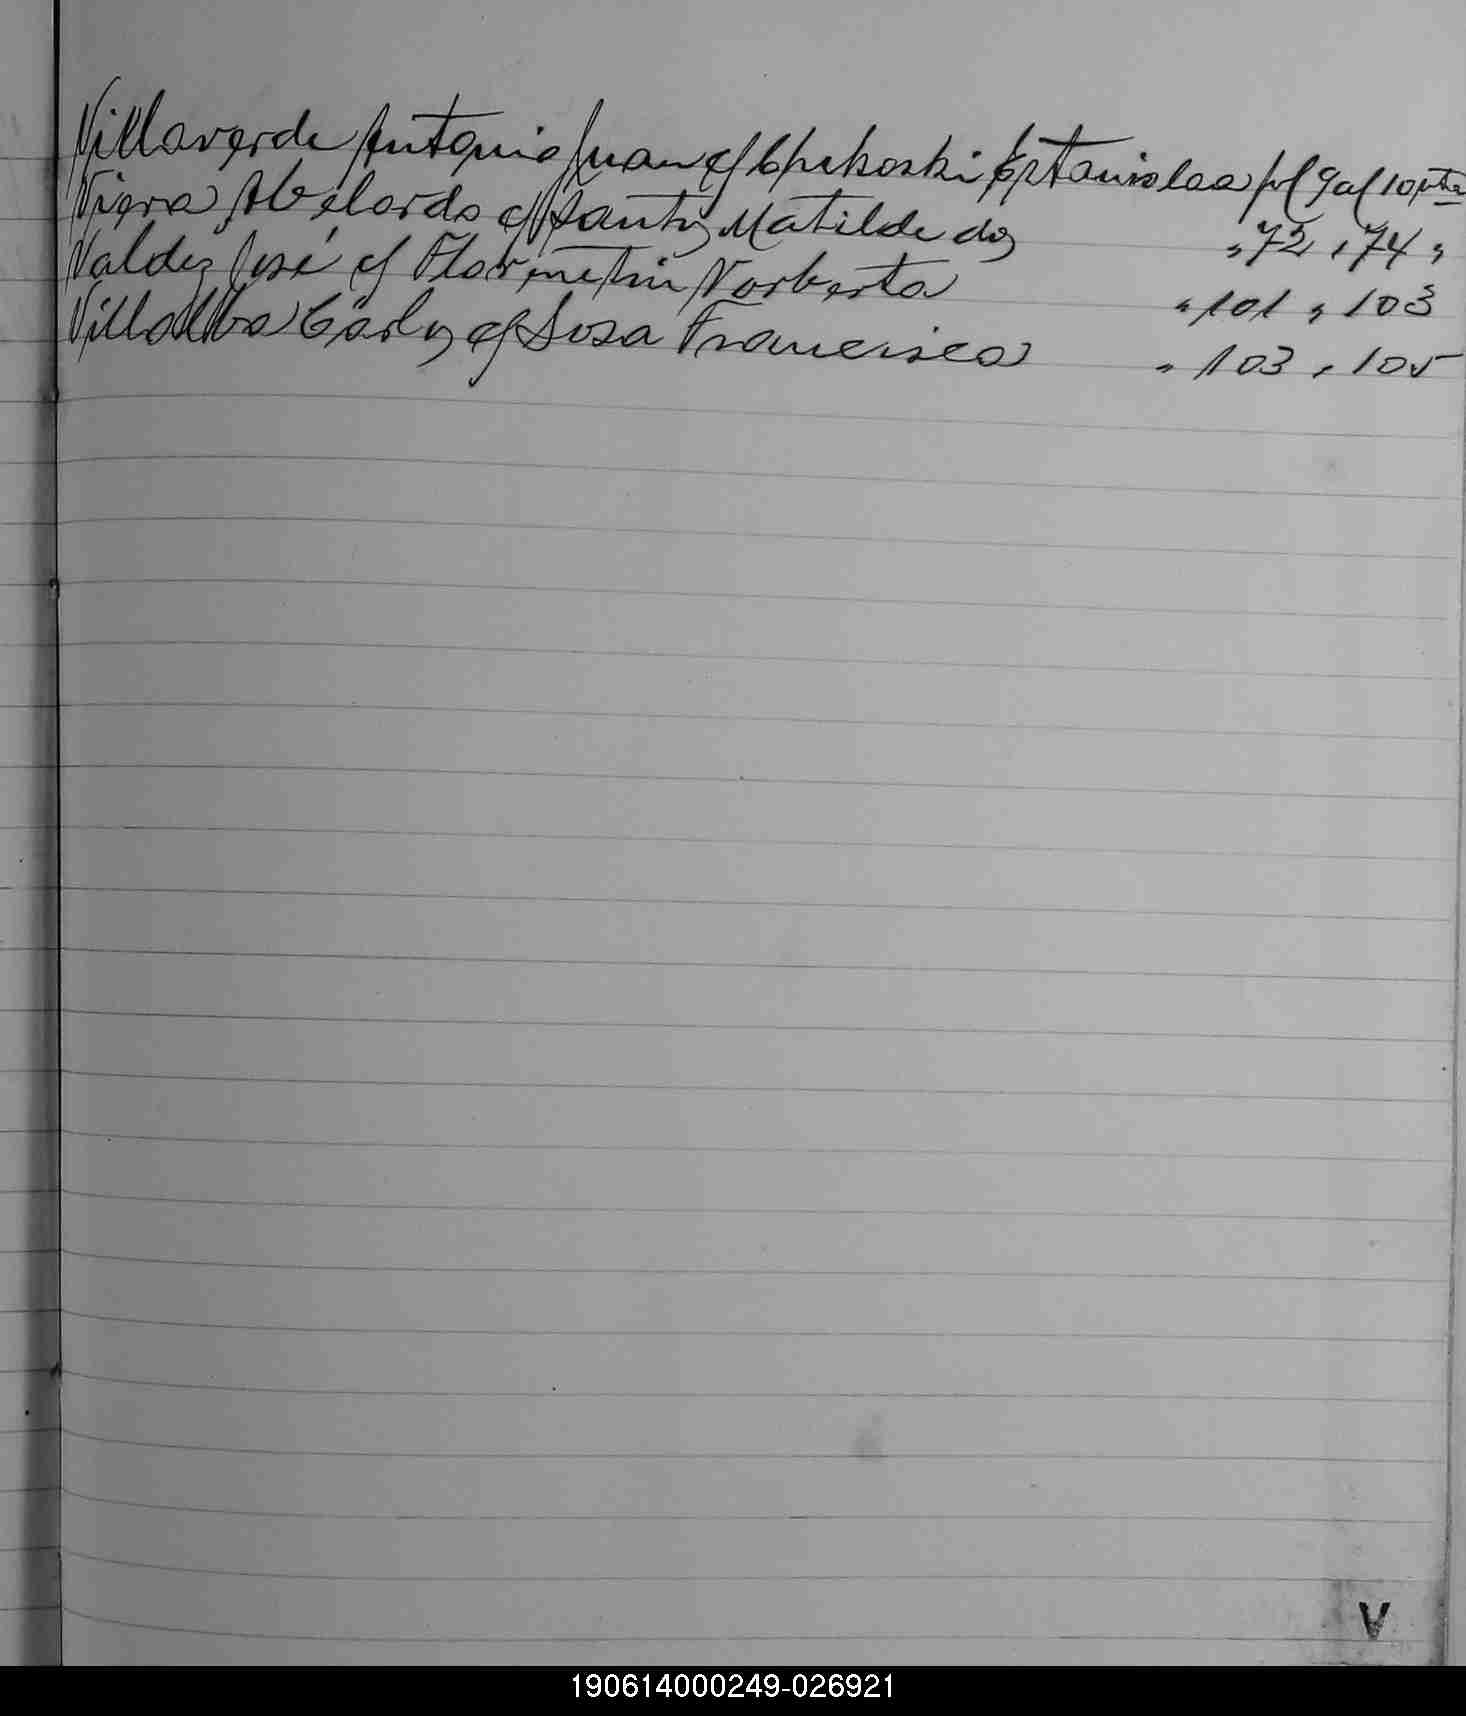 Villaverde Antonio Juan c/ Chukoski Estanislaa fl 9 al 10 vta
Viera Abelardo c/ Santos Matilde dos " 72 " 74 "
Valdez José c/ Florentin Norberta " 101 " 103
Villalba Carlos c/ Sosa Francisca " 103 " 105
V
190614000249-026921